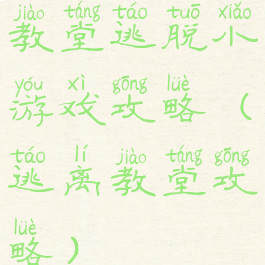 jiào táng táo tuō xiǎo
教堂逃脱小
yóu xì gōng lüè
游戏攻略（
táo lí jiào táng gōng
逃离教堂攻
lüè
略）